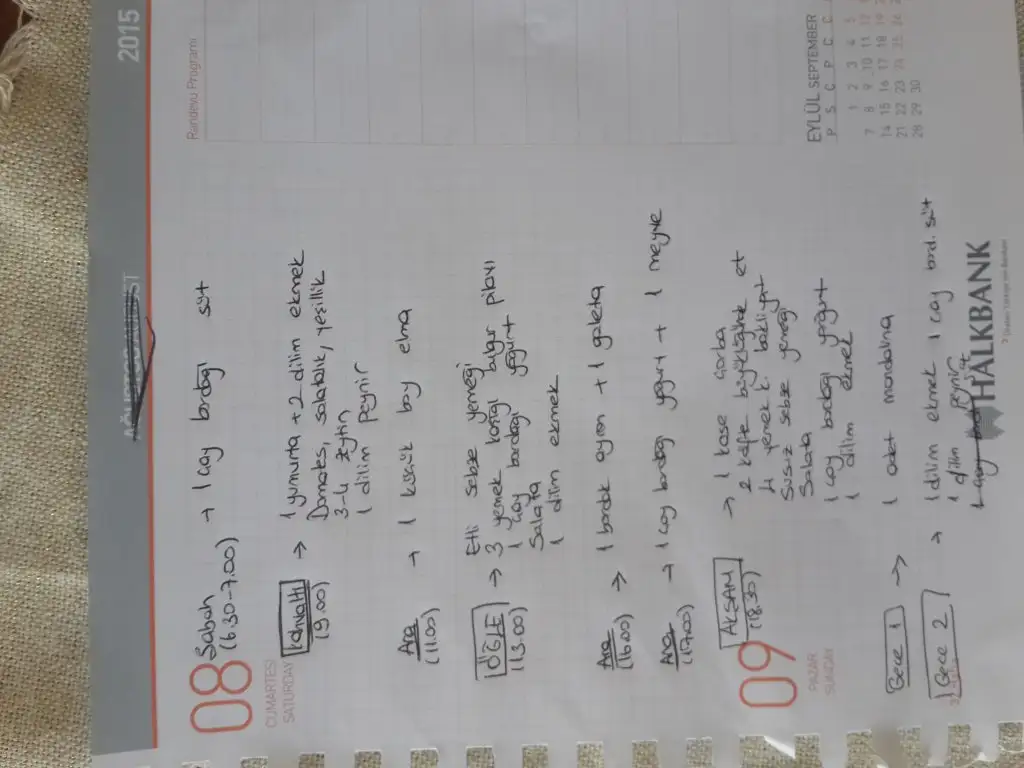 2015
Randevu Programı
08
CUMARTESİ
SATURDAY
Sabah → 1 çay bardağı süt
(6.30-7.00)
Kahvaltı → 1 yumurta + 2 dilim ekmek
(9.00) Domates, salatalık, yeşillik
3-4 zeytin
1 dilim peynir
Ara → 1 küçük boy elma
(11.00)
Etli sebze yemeği
ÖĞLE → 3 yemek kaşığı bulgur pilavı
(13.00) 1 çay bardağı yoğurt
Salata
1 dilim ekmek
Ara → 1 bardak ayran + 1 galeta
(16.00)
Ara → 1 çay bardağı yoğurt + 1 meyve
(17.00)
09
PAZAR
SUNDAY
AKŞAM → 1 kase çorba
(18.30) 2 köfte büyüklüğünde et
4 yemek k. bakliyat
Susuz sebze yemeği
Salata
1 çay bardağı yoğurt
1 dilim ekmek
Gece 1 → 1 adet mandalina
Gece 2 → 1 dilim ekmek 1 çay bard. süt
1 dilim peynir
EYLÜL SEPTEMBER
P S Ç P C C
1 2 3 4 5
7 8 9 10 11 12
14 15 16 17 18 19
21 22 23 24 25 26
28 29 30
HALKBANK